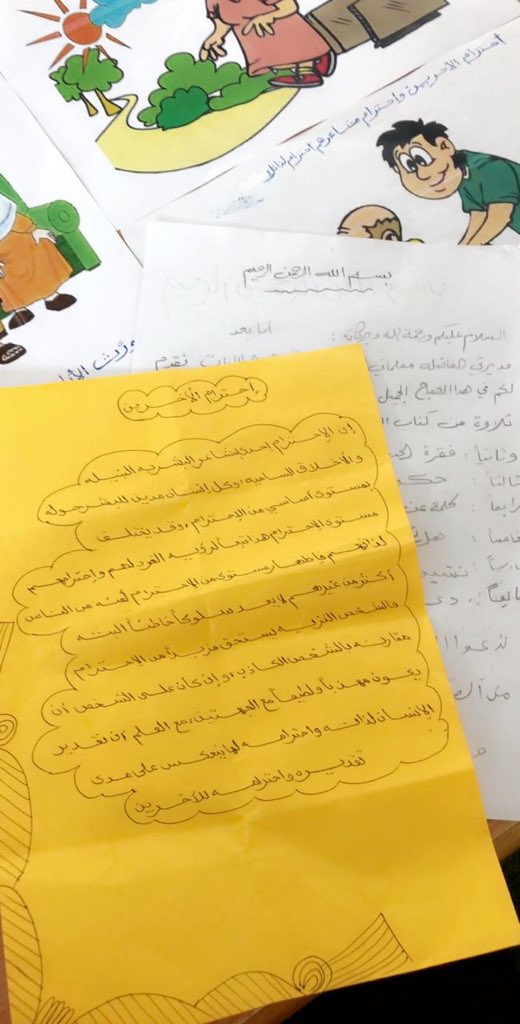 احترام الآخرين واحترام مشاعرهم احترام لذاتك
بسم الله الرحمن الرحيم
السلام عليكم ورحمة الله وبركاته : أما بعد
مديرتي الفاضلة معلماتي نقدم
لكم في هذا الصباح الجميل
تلاوة من كتاب
وثانياً : فقرة
ثالثاً : حكم
رابعاً : كلمة عن
خامساً : هل
نشيد
دعاء
إحترام الآخرين
إن الإحترام إحدى المشاعر البشريه النبيله
والأخلاق الساميه، وكل إنسان مدين للبشر حوله
بمستوى أساسي من الإحترام، وقد يختلف
مستوى الإحترام هذا تبعاً لرؤيه الفرد لهم واحترامهم
لذاتهم وإظهار مستوى من الاحترام لفئه من الناس
أكثر من غيرهم لا يعد سلوكاً خاطئاً البته
فالشخص النزيه يستحق مزيداً من الاحترام
مقارنه بالشخص الكاذب، وإن كان على الشخص أن
يكون مهذباً ولطيفاً مع الجهتين، مع العلم أن تقدير
الإنسان لذاته واحترامه لها ينعكس على مدى
تقديره واحترامه للآخرين